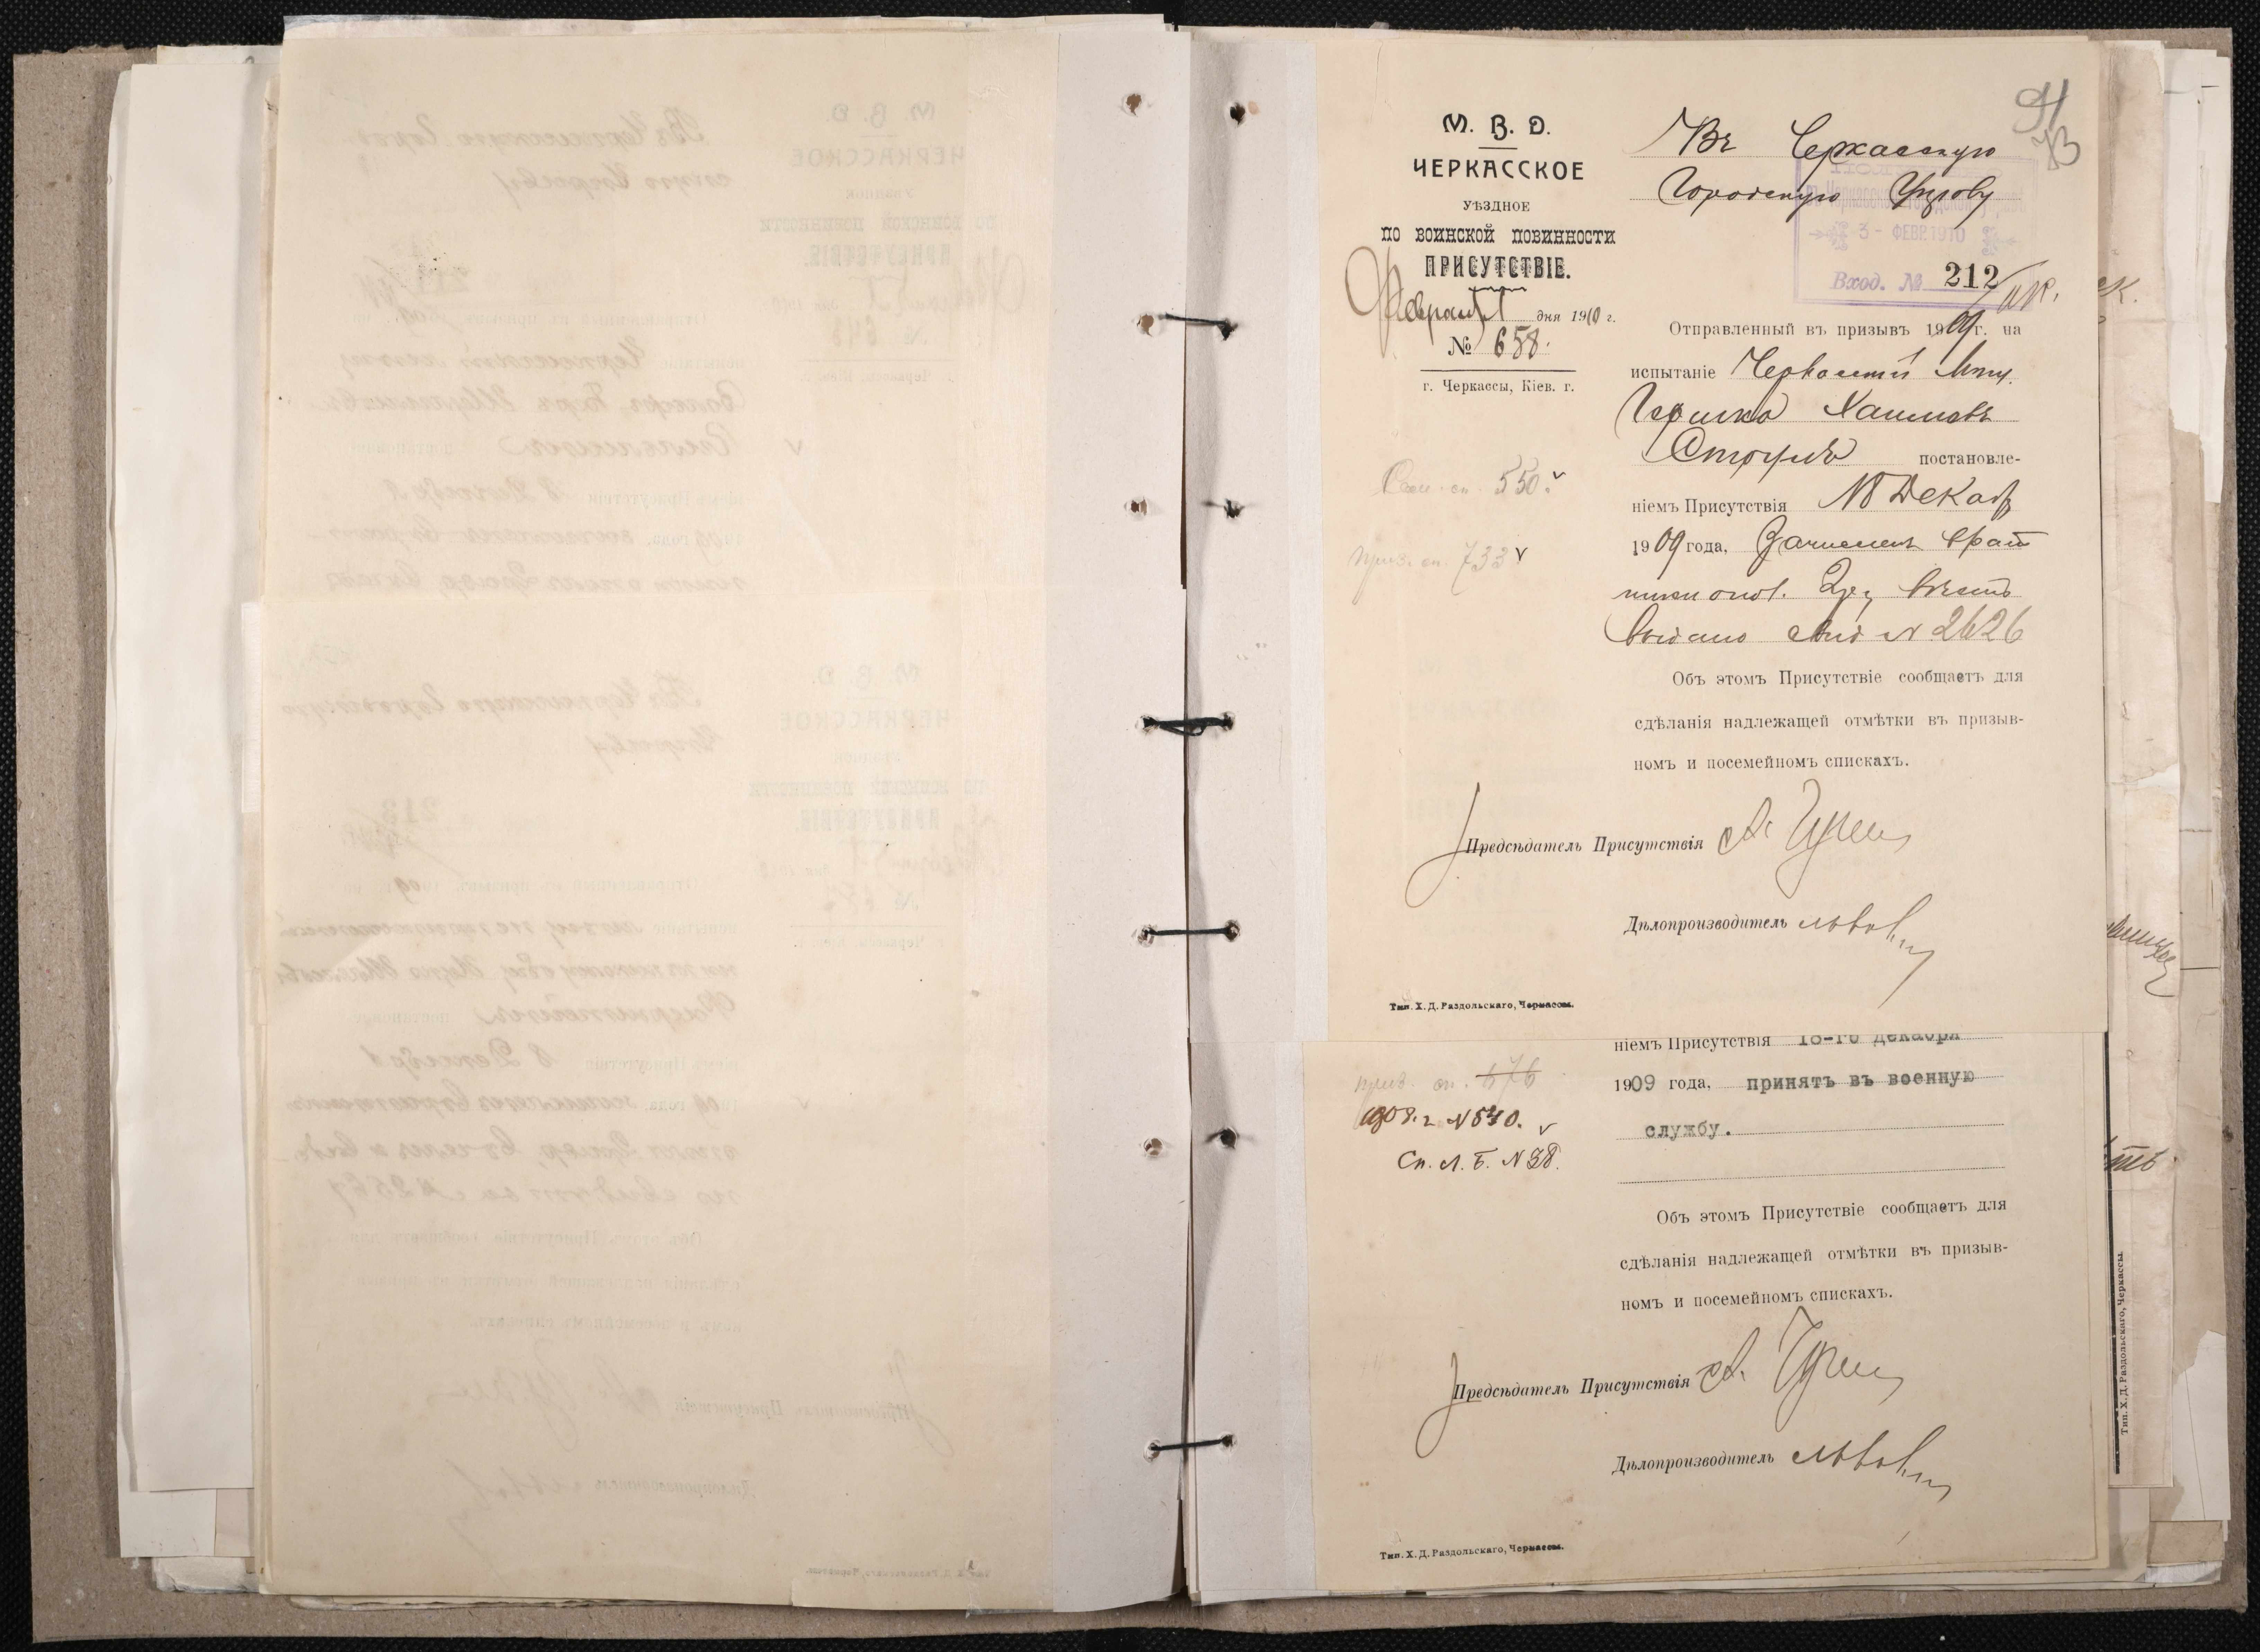 91
73
М. В. Д.
ЧЕРКАССКОЕ
УѢЗДНОЕ
ПО ВОИНСКОЙ ПОВИННОСТИ
ПРИСУТСТВІЕ.
Февраля 1 дня 1910 г.
№ 658.
г. Черкассы, Кіев. г.
Въ Черкасскую
Городскую Управу
3 - ФЕВР. 1910
Вход. № 212
Отправленный въ призывъ 1909 г. на
испытаніе Черкасскій мѣщ.
Хаимовъ
постановле-
ніемъ Присутствія 18 Декаб
1909 года, зачисленъ в рат
ники опол.
выдано свид № 2626
Объ этомъ Присутствіе сообщаетъ для
сдѣланія надлежащей отмѣтки въ призыв-
номъ и посемейномъ спискахъ.
сп. 550. v
приз. сп. 733 v
Предсѣдатель Присутствія
Дѣлопроизводитель
Тип. Х. Д. Раздольскаго, Черкассы.
ніемъ Присутствія 18-го декабря
1909 года, принятъ въ военную
службу.
приз. сп. 676
1908. г. №540. v
Сп. Л. Б. №38.
Объ этомъ Присутствіе сообщаетъ для
сдѣланія надлежащей отмѣтки въ призыв-
номъ и посемейномъ спискахъ.
Предсѣдатель Присутствія
Дѣлопроизводитель
Тип. Х. Д. Раздольскаго, Черкассы.
Тип. Х. Д. Раздольскаго, Черкассы.